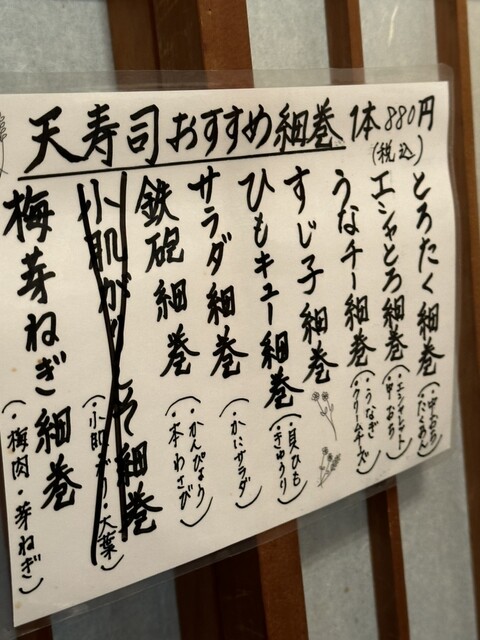 天寿司おすすめ細巻 1本880円
(税込)
とろたく細巻(・中おち・たくあん)
エシャとろ細巻(・エシャレット・中おち)
うなチー細巻(・うなぎ・クリームチーズ)
すじ子細巻
ひもキュー細巻(・貝ひも・きゅうり)
サラダ細巻(・かにサラダ)
鉄砲細巻(・かんぴょう・本わさび)
小肌がり しそ細巻(・小肌・がり・大葉)
梅芽ねぎ細巻(・梅肉・芽ねぎ)